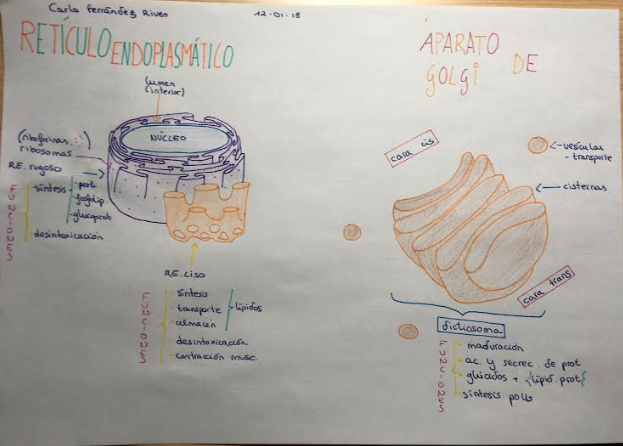 Carla Fernández Riveo
12.01.18
RETÍCULO ENDOPLASMÁTICO
lumen
(interior)
NÚCLEO
(riboforinas)
ribosomas
RE. rugoso
FUNCIONES
síntesis
prot
fosfolip.
glucoprot
desintoxicación
RE. liso
FUNCIONES
- síntesis
- transporte
- almacén
lípidos
- desintoxicación
- contracción musc.
APARATO DE
GOLGI
cara cis
vesículas
- transporte
cisternas
cara trans
dictiosoma
FUNCIONES
- maduración
- ac. y secrec. de prot
- glúcidos + {lípid. prot}
- síntesis polis